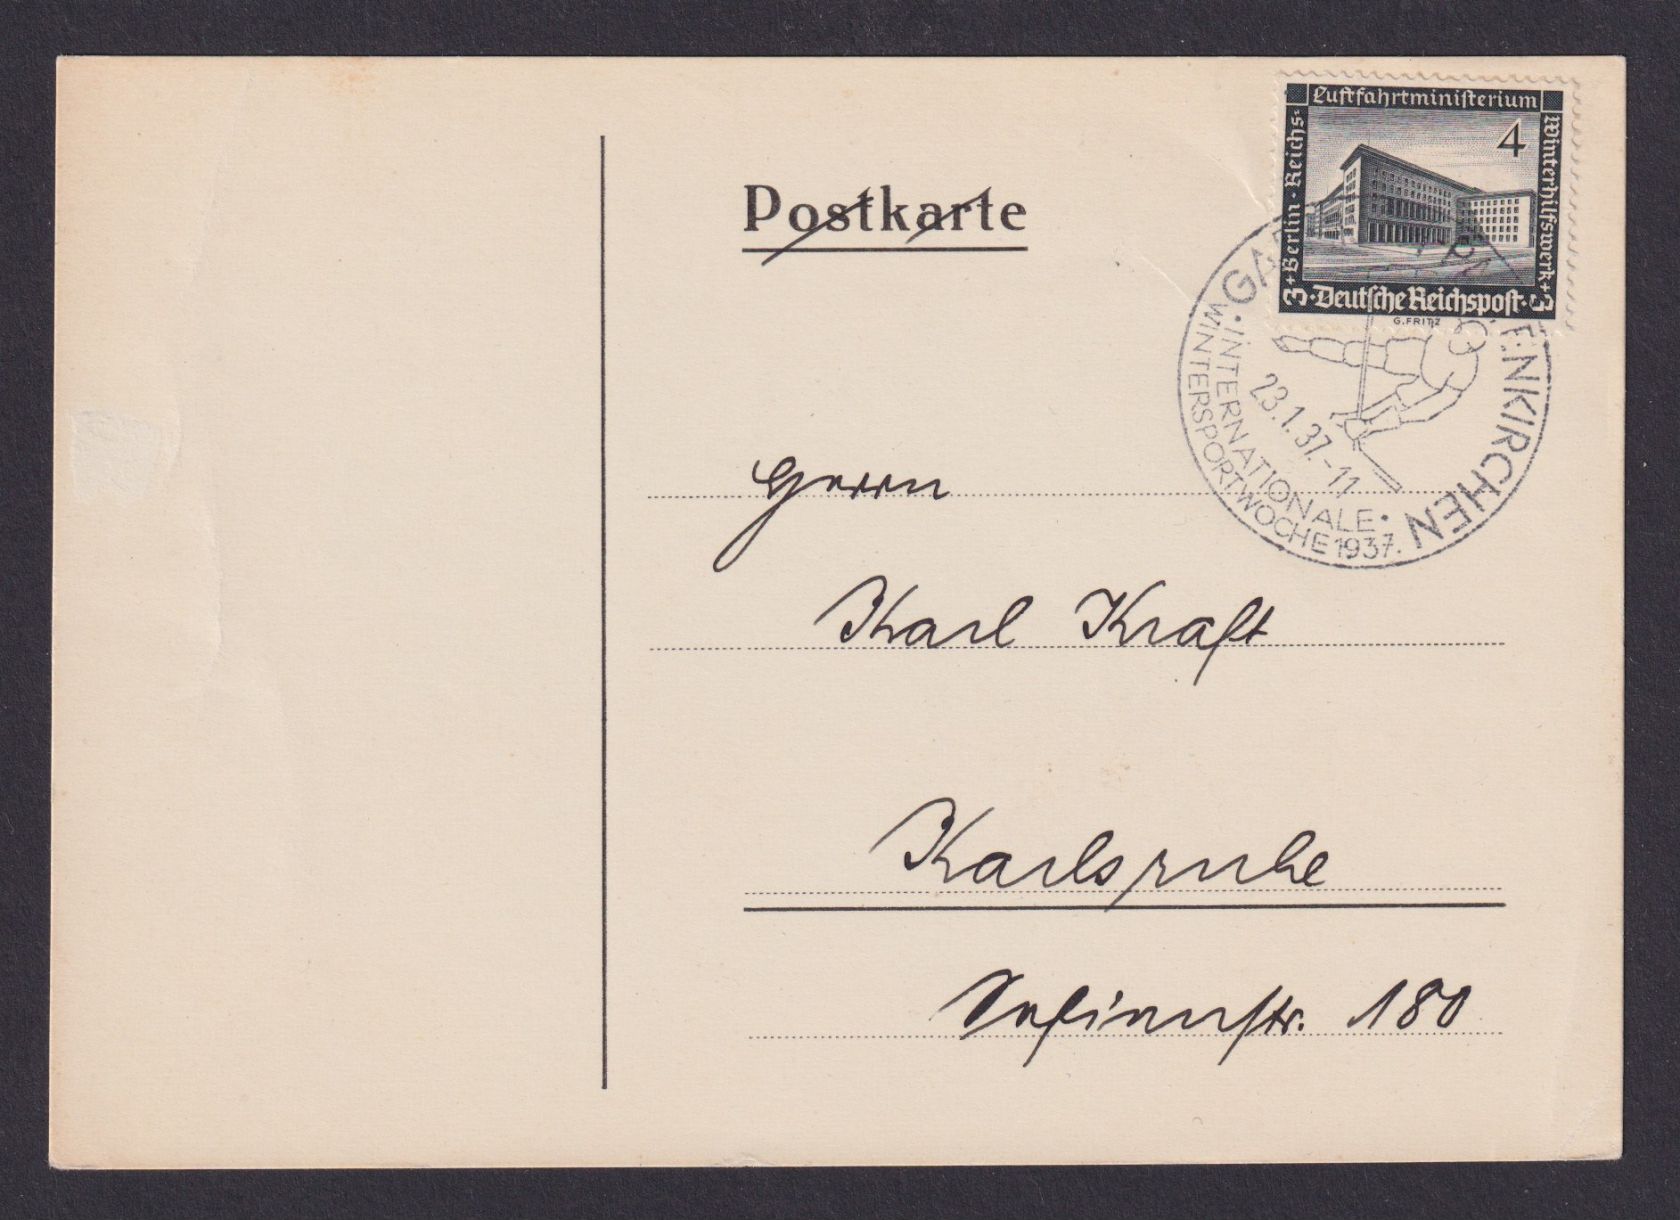 Luftfahrtministerium
Berlin · Reichs-
4
Winterhilfswerk
3 Deutsche Reichspost 3
G. FRITZ
Postkarte
INTERNATIONALE
WINTERSPORTWOCHE 1937.
23.1.37.-11
Herrn
Karl Kraft
Karlsruhe
Sofienstr. 180